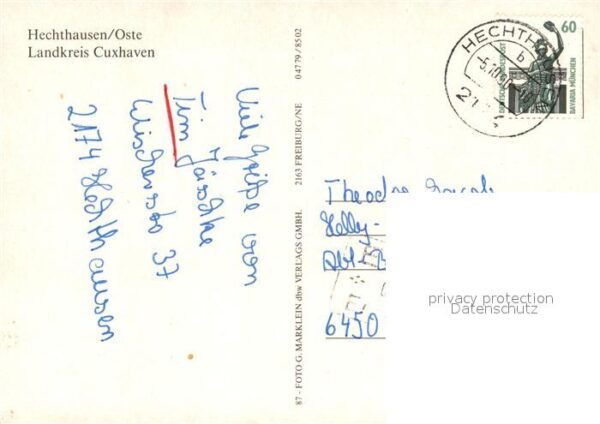 Hechthausen/Oste
Landkreis Cuxhaven
04779/8502
2163 FREIBURG/NE
87 - FOTO G. MARKLEIN dbw VERLAGS GMBH.
Viele Grüße von
Tim Jäschke
37
2174 Hechthausen
HECHTH
b
-5.10.90
21
60
DEUTSCHE BUNDESPOST
BAVARIA MÜNCHEN
Theodor
Kelly-
Abt-
6450
privacy protection
Datenschutz